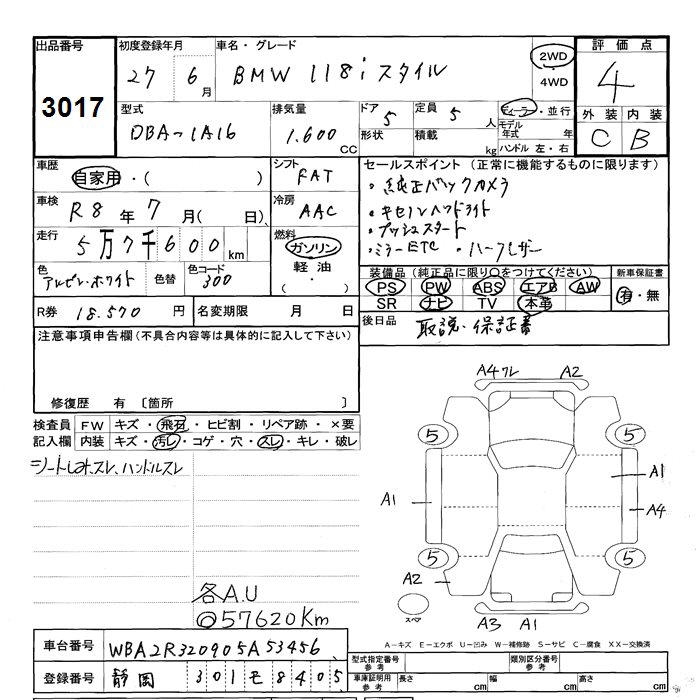 出品番号 初度登録年月 車名・グレード 評価点
3017 27 6月 BMW 118i スタイル 2WD ・ 4WD 4
型式 排気量 ドア 定員 ディーラー・並行 外装 内装
DBA-1A16 1.600 CC 5 5人 C B
形状 積載 kg モデル年式 年
ハンドル 左・右
車歴 自家用・( ) シフト FAT セールスポイント (正常に機能するものに限ります)
・純正バックカメラ
車検 R8年 7月( 日) 冷房 AAC ・キセノンヘッドライト
・プッシュスタート
走行 5万7千600km 燃料 ガソリン ・ミラーETC ・ハーフレザー
軽油
・( )
色 アルピンホワイト 色替 色コード 300 装備品 (純正品に限り○をつけてください) 新車保証書
PS PW ABS エアB AW 有・無
SR ナビ TV 本革
R券 18.570円 名変期限 月 日 後日品 取説・保証書
注意事項申告欄 (不具合内容等は具体的に記入して下さい)
修復歴 有 〔箇所 〕
検査員 FW キズ・飛石・ヒビ割・リペア跡・×要
記入欄 内装 キズ・汚レ・コゲ・穴・スレ・キレ・破レ
シートしわ、スレ、ハンドルスレ
A4ワレ A2
5 5
A1
A1 A4
5 5
A2
スペア
A3 A1
各A.U
◎57620Km
A-キズ E-エクボ U-凹み W-補修跡 S-サビ C-腐食 XX-交換済
車台番号 WBA2R320905A53456
登録番号 静岡 301モ8405
型式指定番号 参考 類別区分番号 参考
車庫証明用 参考 長さ cm 幅 cm 高さ cm